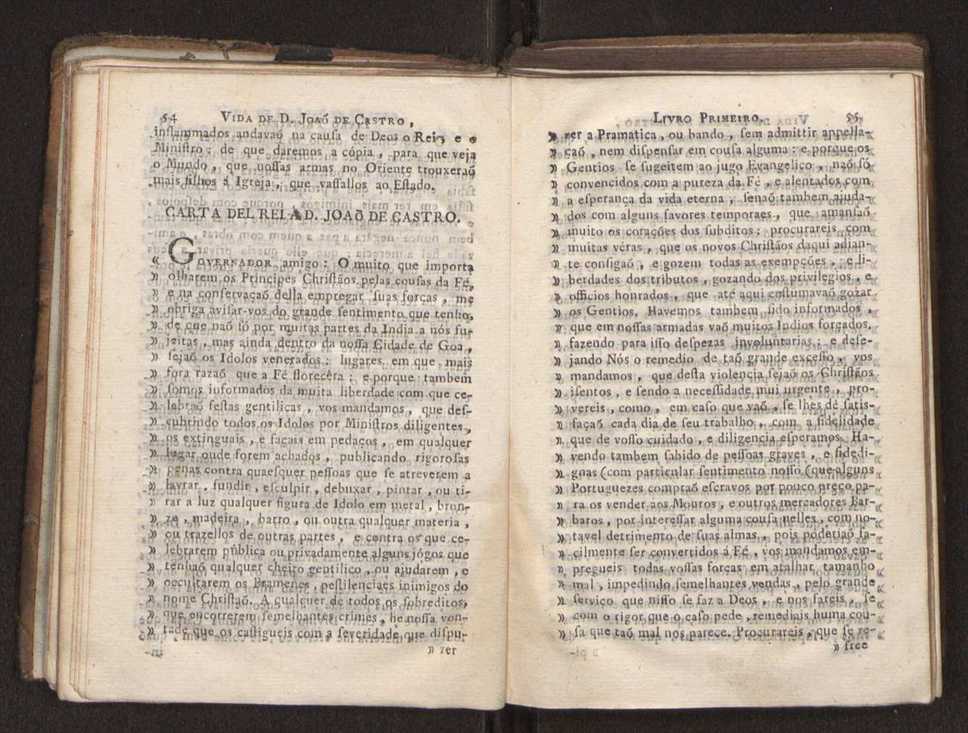 54 VIDA DE D. JOAÕ DE CASTRO,
inflammados andavaõ na caufa de Deos o Rei, e o
Miniftro; de que daremos a cópia, para que veja
o Mundo, que noffas armas no Oriente trouxeraõ
mais filhos á Igreja, que vaffallos ao Eftado.
CARTA DEL REI A D. JOAÕ DE CASTRO.
« GOVERNADOR amigo: O muito que importa
» olharem os Principes Chriftãos pelas coufas da Fé,
» e na confervaçaõ della empregar fuas forças, me
» obriga avifar-vos do grande fentimento que tenho,
» de que naõ fó por muitas partes da India a nós fu-
» jeitas, mas ainda dentro da noffa Cidade de Goa,
» fejaõ os Idolos venerados: lugares em que mais
» fora razaõ que a Fé florecêra; e porque tambem
» fomos informados da muita liberdade com que ce-
» lebraõ feftas gentilicas, vos mandamos, que def-
» cubrindo todos os Idolos por Miniftros diligentes,
» os extinguais, e façais em pedaços, em qualquer
» lugar onde forem achados, publicando rigorofas
» penas contra quaefquer peffoas que fe atreverem a
» lavrar, fundir, efculpir, debuxar, pintar, ou ti-
» rar a luz qualquer figura de Idolo em metal, bron-
» ze, madeira, barro, ou outra qualquer materia,
» ou trazellos de outras partes, e contra os que ce-
» lebrarem pública ou privadamente alguns jógos que
» tenhaõ qualquer cheiro gentilico, ou ajudarem, e
» occultarem os Bramenes, peftilenciaes inimigos do
» nome Chriftaõ. A qualquer de todos os fobreditos,
» que encorrerem femelhantes crimes, he noffa von-
» tade que os caftigueis com a feveridade que difpu-
» zer
LIVRO PRIMEIRO. 55
» zer a Pramatica, ou bando, fem admittir appella-
» çaõ, nem difpenfar em coufa alguma: e porque os
» Gentios fe fugeitem ao jugo Evangelico, naõ fó
» convencidos com a pureza da Fé, e alentados com
» a efperança da vida eterna, fenaõ tambem ajuda-
» dos com alguns favores temporaes, que amanfaõ
» muito os corações dos fubditos; procurareis com
» muitas véras, que os novos Chriftãos daqui adian-
» te configaõ, e gozem todas as exempções, e li-
» berdades dos tributos, gozando dos privilegios, e
» officios honrados, que até aqui coftumavaõ gozar
» os Gentios. Havemos tambem fido informados,
» que em noffas armadas vaõ muitos Indios forçados,
» fazendo para iffo defpezas involuntarias; e defe-
» jando Nós o remedio de taõ grande exceffo, vos
» mandamos, que defta violencia fejaõ os Chriftãos
» ifentos, e fendo a neceffidade mui urgente, pro-
» vereis, como, em cafo que vaõ, fe lhes dê fatis-
» façaõ cada dia de feu trabalho, com a fidelidade
» que de voffo cuidado, e diligencia efperamos. Ha-
» vendo tambem fabido de peffoas graves, e fidedi-
» gnas (com particular fentimento noffo (que alguns
» Portuguezes compraõ efcravos por pouco preço pa-
» ra os vender aos Mouros, e outros mercadores Bar-
» baros, por intereffar alguma coufa nelles, com no-
» tavel detrimento de fuas almas, pois podetiaõ fa-
» cilmente fer convertidos á Fé, vos mandamos em-
» pregueis todas voffas forças em atalhar tamanho
» mal, impedindo femelhantes vendas, pelo grande
» ferviço que niffo fe faz a Deos, e nos fareis, fe
» com o rigor que o cafo pede, remediais huma cou-
» fa que taõ mal nos parece. Procurareis, que fe re-
» free